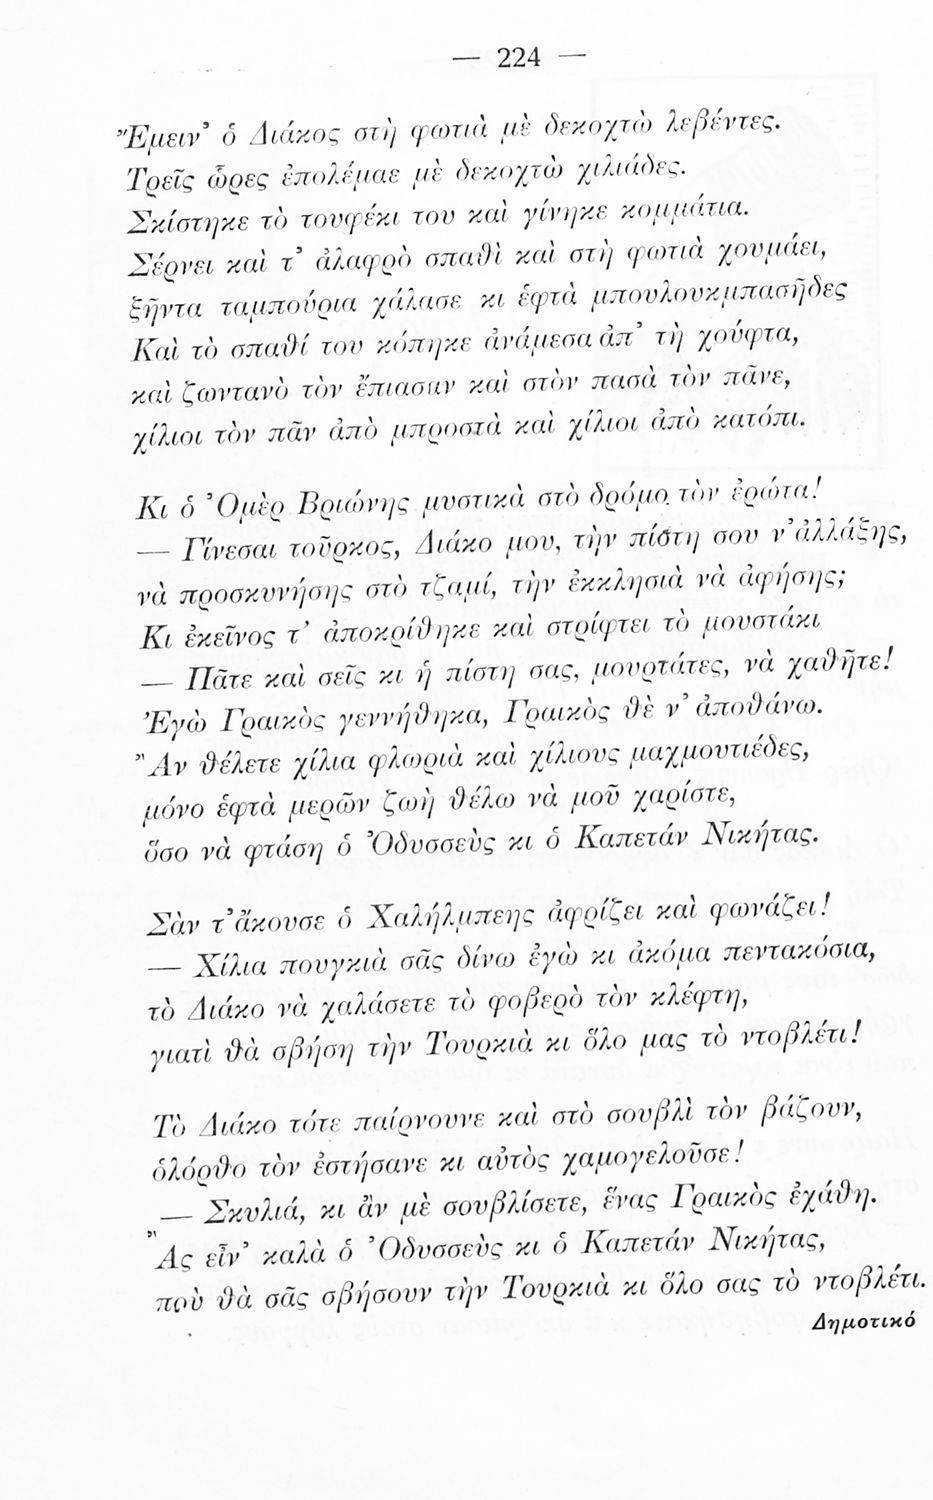 — 224 —
Ἔμειν' ὁ Διάκος στὴ φωτιὰ μὲ δεκοχτὼ λεβέντες.
Τρεῖς ὧρες ἐπολέμαε μὲ δεκοχτὼ χιλιάδες.
Σκίστηκε τὸ τουφέκι του καὶ γίνηκε κομμάτια.
Σέρνει καὶ τ' ἀλαφρὸ σπαθὶ καὶ στὴ φωτιὰ χουμάει,
ξῆντα ταμπούρια χάλασε κι ἑφτὰ μπουλουκμπασῆδες
Καὶ τὸ σπαθί του κόπηκε ἀνάμεσα ἀπ' τὴ χούφτα,
καὶ ζωντανὸ τὸν ἔπιασαν καὶ στὸν πασὰ τὸν πᾶνε,
χίλιοι τὸν πᾶν ἀπὸ μπροστὰ καὶ χίλιοι ἀπὸ κατόπι.
Κι ὁ Ὀμὲρ Βριώνης μυστικὰ στὸ δρόμο τὸν ἐρώτα!
— Γίνεσαι τοῦρκος, Διάκο μου, τὴν πίστη σου ν' ἀλλάξης,
νὰ προσκυνήσης στὸ τζαμί, τὴν ἐκκλησιὰ νὰ ἀφήσης;
Κι ἐκεῖνος τ' ἀποκρίθηκε καὶ στρίφτει τὸ μουστάκι
— Πᾶτε καὶ σεῖς κι ἡ πίστη σας, μουρτάτες, νὰ χαθῆτε!
Ἐγὼ Γραικὸς γεννήθηκα, Γραικὸς θὲ ν' ἀποθάνω.
Ἂν θέλετε χίλια φλωριὰ καὶ χίλιους μαχμουτιέδες,
μόνο ἑφτὰ μερῶν ζωὴ θέλω νὰ μοῦ χαρίστε,
ὅσο νὰ φτάση ὁ Ὀδυσσεὺς κι ὁ Καπετάν Νικήτας.
Σὰν τ' ἄκουσε ὁ Χαλήλμπεης ἀφρίζει καὶ φωνάζει!
— Χίλια πουγκιὰ σᾶς δίνω ἐγὼ κι ἀκόμα πεντακόσια,
τὸ Διάκο νὰ χαλάσετε τὸ φοβερὸ τὸν κλέφτη,
γιατὶ θὰ σβήση τὴν Τουρκιὰ κι ὅλο μας τὸ ντοβλέτι!
Τὸ Διάκο τότε παίρνουνε καὶ στὸ σουβλὶ τὸν βάζουν,
ὁλόρθο τὸν ἐστήσανε κι αὐτὸς χαμογελοῦσε!
— Σκυλιά, κι ἂν μὲ σουβλίσετε, ἕνας Γραικὸς ἐχάθη.
Ἂς εἶν' καλὰ ὁ Ὀδυσσεὺς κι ὁ Καπετάν Νικήτας,
ποὺ θὰ σᾶς σβήσουν τὴν Τουρκιὰ κι ὅλο σας τὸ ντοβλέτι.
Δημοτικό